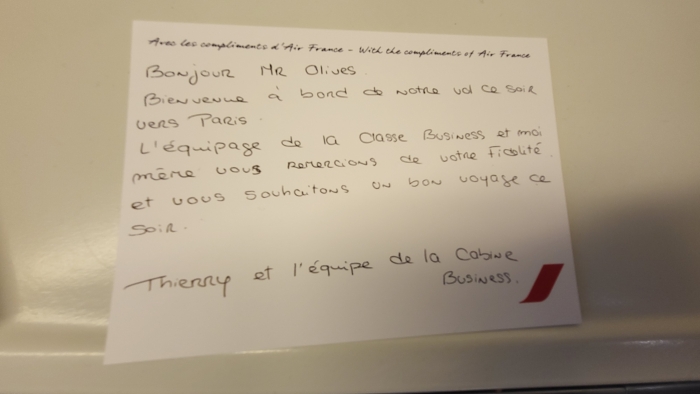 Avec les compliments d'Air France - With the compliments of Air France
Bonjour Mr Olives.
Bienvenue à bord de notre vol ce soir
vers Paris.
L'équipage de la Classe Business et moi
même vous remercions de votre fidélité.
et vous souhaitons un bon voyage ce
soir.
Thierry et l'équipe de la Cabine
Business.